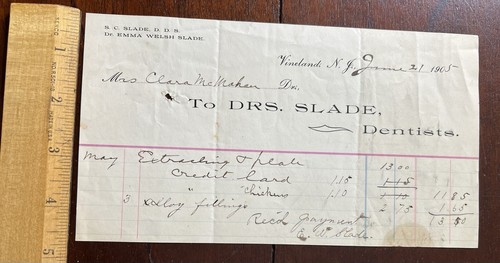 S. C. SLADE, D. D. S.
Dr. EMMA WELSH SLADE.
Vineland, N. J., June 21 1905
Mrs Clara McMahan Dr.
To DRS. SLADE,
Dentists.
May Extracting & plate 13 00
Credit Card 1.15 1 15
" "Chickens 1.10 1 10 11 85
3 alloy fillings 2 75 1 65
Rec'd payment 13 50
E. W. Slade.